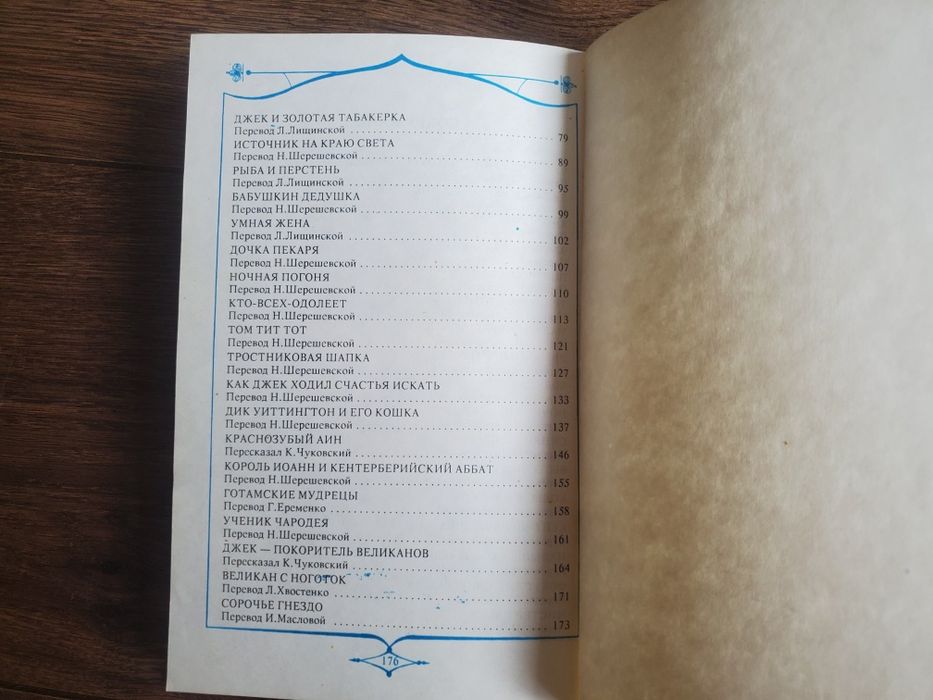 ДЖЕК И ЗОЛОТАЯ ТАБАКЕРКА
Перевод Л.Лищинской . . . . . . . . . . . . . . . . . . . . . . . . 79
ИСТОЧНИК НА КРАЮ СВЕТА
Перевод Н.Шерешевской . . . . . . . . . . . . . . . . . . . . . . . . 89
РЫБА И ПЕРСТЕНЬ
Перевод Л.Лищинской . . . . . . . . . . . . . . . . . . . . . . . . 95
БАБУШКИН ДЕДУШКА
Перевод Н.Шерешевской . . . . . . . . . . . . . . . . . . . . . . . . 99
УМНАЯ ЖЕНА
Перевод Л.Лищинской . . . . . . . . . . . . . . . . . . . . . . . . 102
ДОЧКА ПЕКАРЯ
Перевод Н.Шерешевской . . . . . . . . . . . . . . . . . . . . . . . . 107
НОЧНАЯ ПОГОНЯ
Перевод Н.Шерешевской . . . . . . . . . . . . . . . . . . . . . . . . 110
КТО-ВСЕХ-ОДОЛЕЕТ
Перевод Н.Шерешевской . . . . . . . . . . . . . . . . . . . . . . . . 113
ТОМ ТИТ ТОТ
Перевод Н.Шерешевской . . . . . . . . . . . . . . . . . . . . . . . . 121
ТРОСТНИКОВАЯ ШАПКА
Перевод Н.Шерешевской . . . . . . . . . . . . . . . . . . . . . . . . 127
КАК ДЖЕК ХОДИЛ СЧАСТЬЯ ИСКАТЬ
Перевод Н.Шерешевской . . . . . . . . . . . . . . . . . . . . . . . . 133
ДИК УИТТИНГТОН И ЕГО КОШКА
Перевод Н.Шерешевской . . . . . . . . . . . . . . . . . . . . . . . . 137
КРАСНОЗУБЫЙ АИН
Пересказал К.Чуковский . . . . . . . . . . . . . . . . . . . . . . . . 146
КОРОЛЬ ИОАНН И КЕНТЕРБЕРИЙСКИЙ АББАТ
Перевод Н.Шерешевской . . . . . . . . . . . . . . . . . . . . . . . . 155
ГОТАМСКИЕ МУДРЕЦЫ
Перевод Г.Еременко . . . . . . . . . . . . . . . . . . . . . . . . 158
УЧЕНИК ЧАРОДЕЯ
Перевод Н.Шерешевской . . . . . . . . . . . . . . . . . . . . . . . . 161
ДЖЕК — ПОКОРИТЕЛЬ ВЕЛИКАНОВ
Пересказал К.Чуковский . . . . . . . . . . . . . . . . . . . . . . . . 164
ВЕЛИКАН С НОГОТОК
Перевод Л.Хвостенко . . . . . . . . . . . . . . . . . . . . . . . . 171
СОРОЧЬЕ ГНЕЗДО
Перевод И.Масловой . . . . . . . . . . . . . . . . . . . . . . . . 173
176